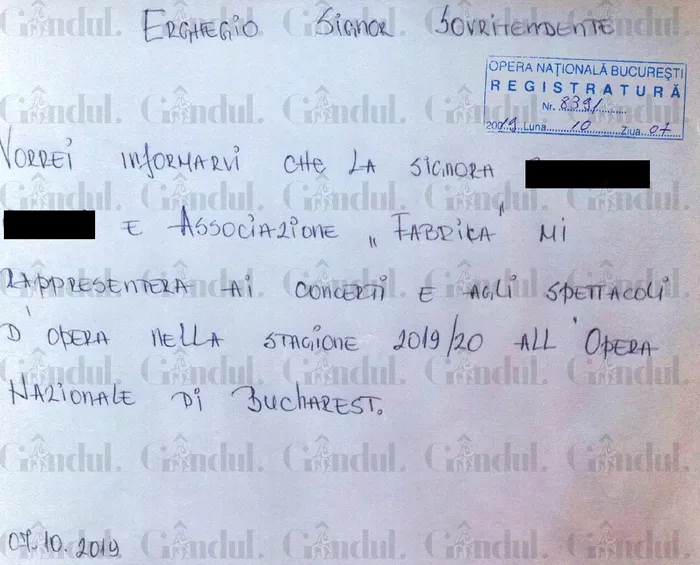 ERGHEGIO SIGNOR SOVRITENDENTE
OPERA NAȚIONALĂ BUCUREȘTI
REGISTRATURĂ
Nr. 8391
2019 Luna 10 Ziua 07
VORREI INFORMARVI CHE LA SIGNORA
E ASSOCIAZIONE „FABRIKA" MI
RAPPRESENTERA AI CONCERTI E AGLI SPETTACOLI
D'OPERA NELLA STAGIONE 2019/20 ALL'OPERA
NAZIONALE DI BUCHAREST.
07.10.2019
Gândul. Gândul. Gândul. Gândul. Gândul.